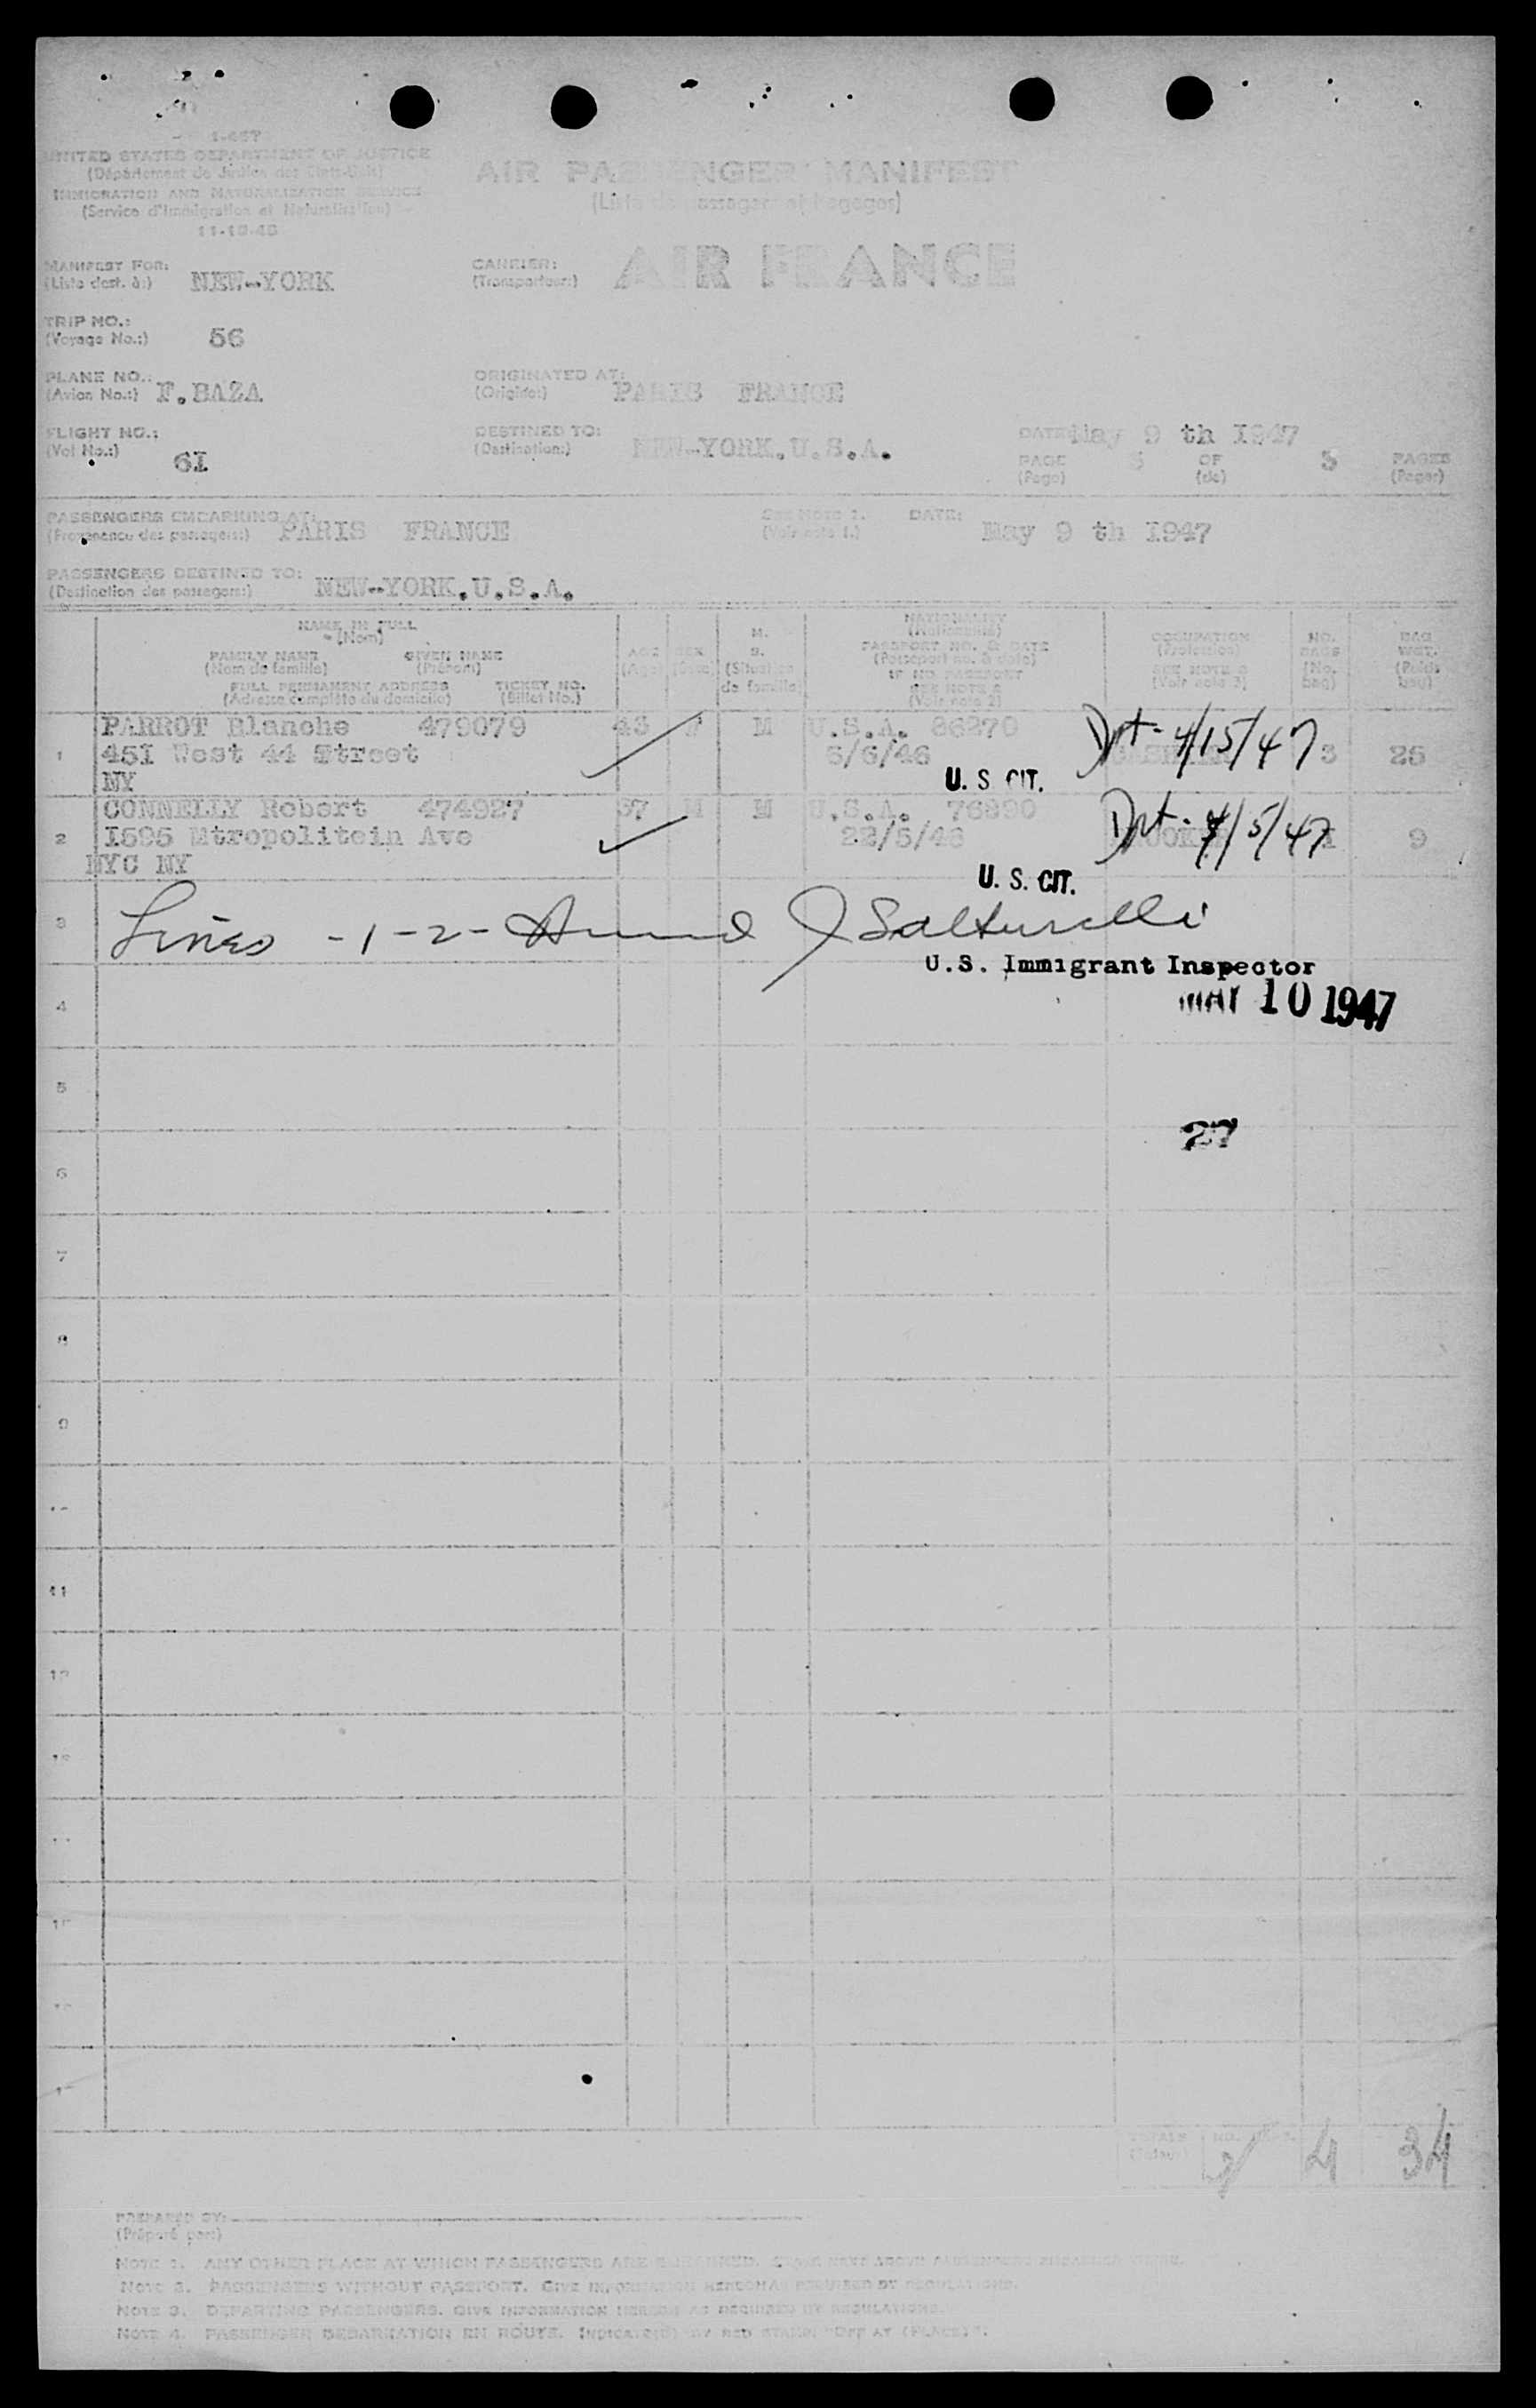 I-467
UNITED STATES DEPARTMENT OF JUSTICE
(Département de Justice des Etats-Unis)
IMMIGRATION AND NATURALIZATION SERVICE
(Service d'Immigration et Naturalisation)
11-18-46
AIR PASSENGER MANIFEST
(Liste de passagers et bagages)
MANIFEST FOR: NEW-YORK
(Liste dest. à:)
CARRIER: AIR FRANCE
(Transporteur:)
TRIP NO.: 56
(Voyage No.:)
PLANE NO.: F.BAZA
(Avion No.:)
ORIGINATED AT: PARIS FRANCE
(Origine:)
FLIGHT NO.: 6I
(Vol No.:)
DESTINED TO: NEW-YORK.U.S.A.
(Destination:)
DATE: May 9 th I947
PAGE 5 OF 5 PAGES
(Page) (de) (Pages)
PASSENGERS EMBARKING AT: PARIS FRANCE
(Provenance des passagers:)
SEE NOTE 1.
(Voir note 1.)
DATE: May 9 th I947
PASSENGERS DESTINED TO: NEW-YORK.U.S.A.
(Destination des passagers:)
NAME IN FULL
(Nom)
FAMILY NAME GIVEN NAME
(Nom de famille) (Prénom)
FULL PERMANENT ADDRESS TICKET NO.
(Adresse complète du domicile) (Billet No.)
AGE
(Age)
SEX
(Sexe)
M.
S.
(Situation
de famille)
NATIONALITY
(Nationalité)
PASSPORT NO. & DATE
(Passeport no. & date)
IF NO PASSPORT
SEE NOTE 2
(Voir note 2)
OCCUPATION
(Profession)
SEE NOTE 3
(Voir note 3)
NO.
BAGS
(No.
bag)
BAG
WGT.
(Poids
bag)
1 PARROT Blanche 479079 43 F M U.S.A. 86270 Dpt- 4/15/47 3 25
45I West 44 Street 5/6/46
NY U. S. CIT.
2 CONNELLY Robert 474927 37 M M U.S.A. Dpt. 4/5/47 9
I595 Mtropolitein Ave 22/5/46
NYC NY U. S. CIT.
3 Lines -1-2-
U.S. Immigrant Inspector
MAY 10 1947
4
5
27
6
7
8
9
11
12
TOTALS
4 34
PREPARED BY:
(Préparé par:)
NOTE 1. ANY OTHER PLACE AT WHICH PASSENGERS ARE
NOTE 2. PASSENGERS WITHOUT PASSPORT. GIVE INFORMATION HEREON AS REQUIRED BY REGULATIONS.
NOTE 3. DEPARTING PASSENGERS. GIVE INFORMATION HEREON AS REQUIRED BY REGULATIONS.
NOTE 4. PASSENGER DEBARKATION EN ROUTE. INDICATE BY RED STAMP "OFF AT (PLACE)".